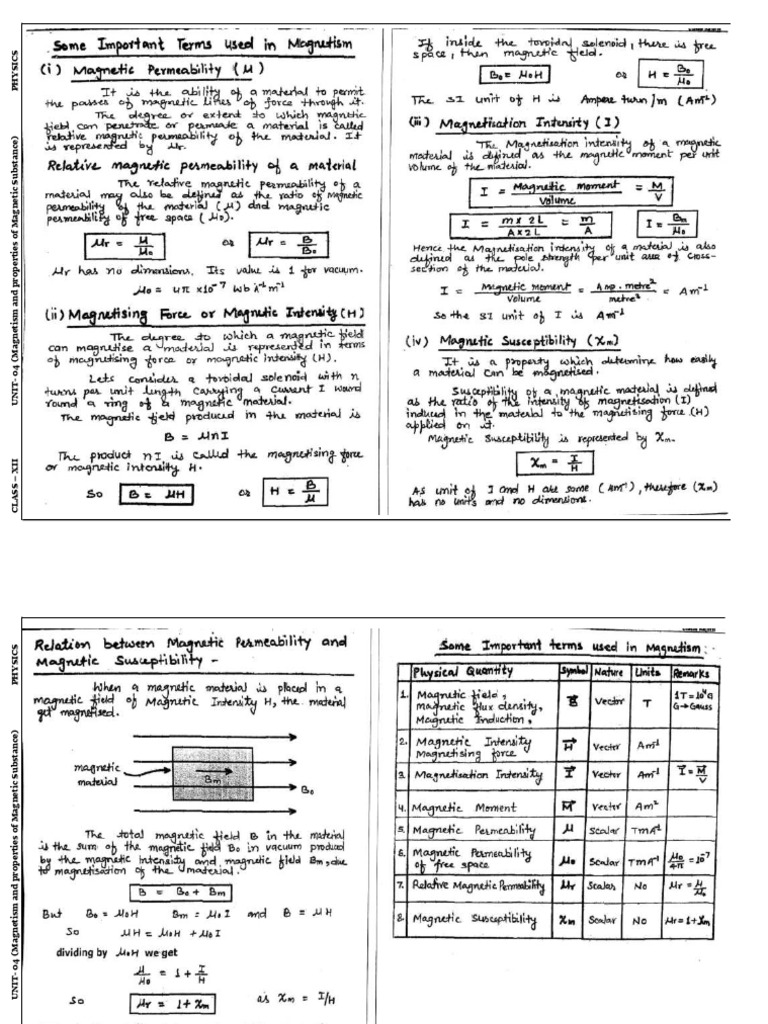 PHYSICS
UNIT- 04 (Magnetism and properties of Magnetic Substance)
CLASS – XII
Some Important Terms used in Magnetism
(i) Magnetic Permeability (μ)
It is the ability of a material to permit
the passes of magnetic lines of force through it.
The degree or extent to which magnetic
field can penetrate or permeate a material is called
relative magnetic permeability of the material. It
is represented by μr.
Relative magnetic permeability of a material
The relative magnetic permeability of a
material may also be defined as the ratio of magnetic
permeability of the material (μ) and magnetic
permeability of free space (μ0).
μr = μ/μ0 or μr = B/B0
μr has no dimensions. Its value is 1 for vacuum.
μ0 = 4π ×10⁻⁷ Wb A⁻¹ m⁻¹
(ii) Magnetising Force or Magnetic Intensity (H)
The degree to which a magnetic field
can magnetise a material is represented in terms
of magnetising force or magnetic intensity (H).
Lets consider a toroidal solenoid with n
turns per unit length carrying a current I wound
round a ring of a magnetic material.
The magnetic field produced in the material is
B = μnI
The product nI is called the magnetising force
or magnetic intensity H.
So B = μH or H = B/μ
If inside the toroidal solenoid, there is free
space, then magnetic field.
B0 = μ0H or H = B0/μ0
The SI unit of H is Ampere turn/m (Am⁻¹)
(iii) Magnetisation Intensity (I)
The Magnetisation intensity of a magnetic
material is defined as the magnetic moment per unit
volume of the material.
I = Magnetic moment/Volume = M/V
I = m × 2L/A × 2L = m/A I = Bm/μ0
Hence the Magnetisation intensity of a material is also
defined as the pole strength per unit area of cross-
section of the material.
I = Magnetic moment/Volume = Amp. metre²/metre³ = Am⁻¹
So the SI unit of I is Am⁻¹
(iv) Magnetic Susceptibility (χm)
It is a property which determine how easily
a material can be magnetised.
Susceptibility of a magnetic material is defined
as the ratio of the intensity of magnetisation (I)
induced in the material to the magnetising force (H)
applied on it.
Magnetic Susceptibility is represented by χm.
χm = I/H
As unit of I and H are same (Am⁻¹), therefore (χm)
has no units and no dimensions.
PHYSICS
UNIT- 04 (Magnetism and properties of Magnetic Substance)
Relation between Magnetic Permeability and
Magnetic Susceptibility -
When a magnetic material is placed in a
magnetic field of Magnetic Intensity H, the material
get magnetised.
magnetic
material
Bm
B0
The total magnetic field B in the material
is the sum of the magnetic field B0 in vacuum produced
by the magnetic intensity and magnetic field Bm, due
to magnetisation of the material.
B = B0 + Bm
But B0 = μ0H Bm = μ0I and B = μH
So μH = μ0H + μ0I
dividing by μ0H we get
μ/μ0 = 1 + I/H
So μr = 1 + χm as χm = I/H
Some Important terms used in Magnetism:
Physical Quantity Symbol Nature Units Remarks
1. Magnetic field, magnetic flux density, Magnetic Induction, B Vector T 1T=10⁴G G→Gauss
2. Magnetic Intensity Magnetising force H Vector Am⁻¹
3. Magnetisation Intensity I Vector Am⁻¹ I = M/V
4. Magnetic Moment M Vector Am²
5. Magnetic Permeability μ Scalar TmA⁻¹
6. Magnetic Permeability of free space μ0 Scalar TmA⁻¹ μ0/4π = 10⁻⁷
7. Relative Magnetic Permeability μr Scalar No μr = μ/μ0
8. Magnetic Susceptibility χm Scalar No μr = 1+χm